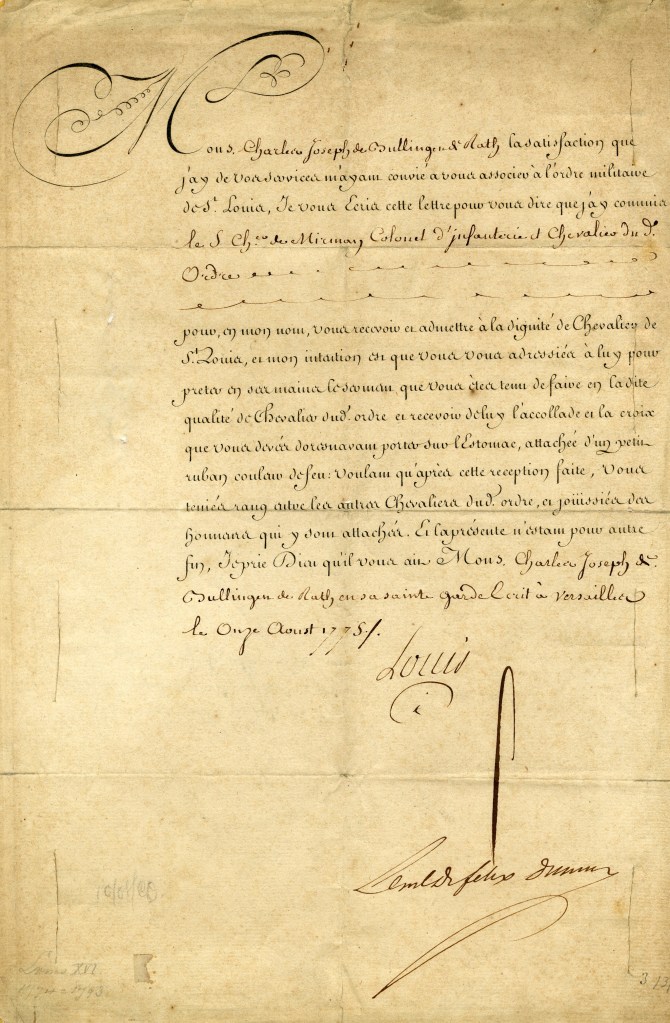 Mons. Charles Joseph de Bullingen de Rath la satisfaction que
j'ay de vos services m'ayant convié a vous associer à l'ordre militaire
de St. Louis, Je vous Ecris cette lettre pour vous dire que j'ay commis
le S. Cher. de Mirman Colonel d'infanterie et Chevalier du d.
Ordre
pour, en mon nom, vous recevoir et admettre à la dignité de Chevalier de
St. Louis, et mon intention est que vous vous adressiés à luy pour
preter en ses mains le serment que vous êtes tenu de faire en la dite
qualité de Chevalier dud. ordre et recevoir de luy l'accollade et la croix
que vous devés doresnavant porter sur l'Estomac, attachée d'un petit
ruban couleur de feu: voulant qu'après cette reception faite, vous
teniés rang entre les autres Chevaliers dud. ordre, et joüissiés des
honneurs qui y sont attachés. Et la présente n'estant pour autre
fin, Je prie Dieu qu'il vous ait Mons. Charles Joseph de
Bullingen de Rath en sa sainte garde Ecrit à Versailles
le Onze Aoust 1775./.
Louis
Louis XVI